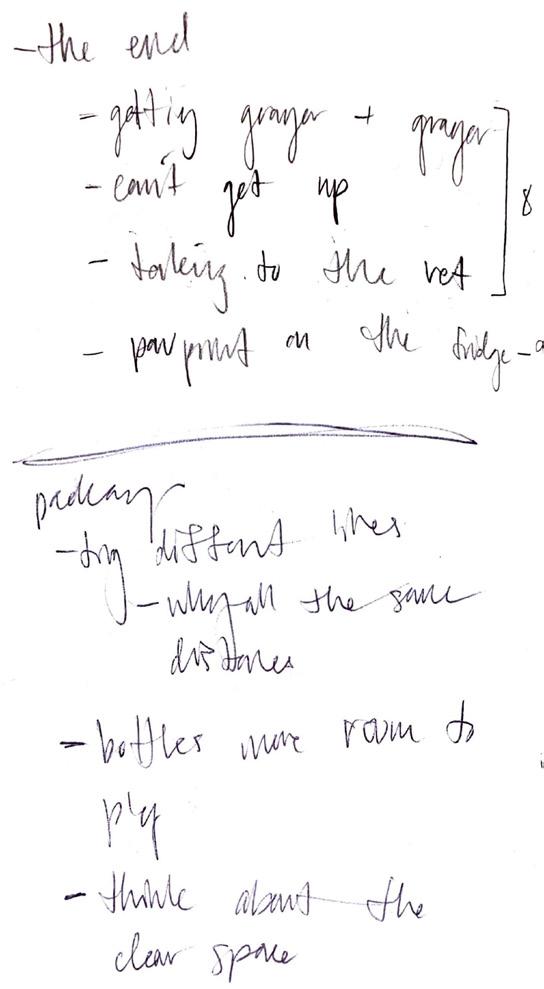 - the end
- getting grayer + grayer
- can't get up
- taking to the vet
8
- paw print on the fridge -
packag
- try different lines
- why all the same
distances
- bottles more room to
play
- think about the
clear space